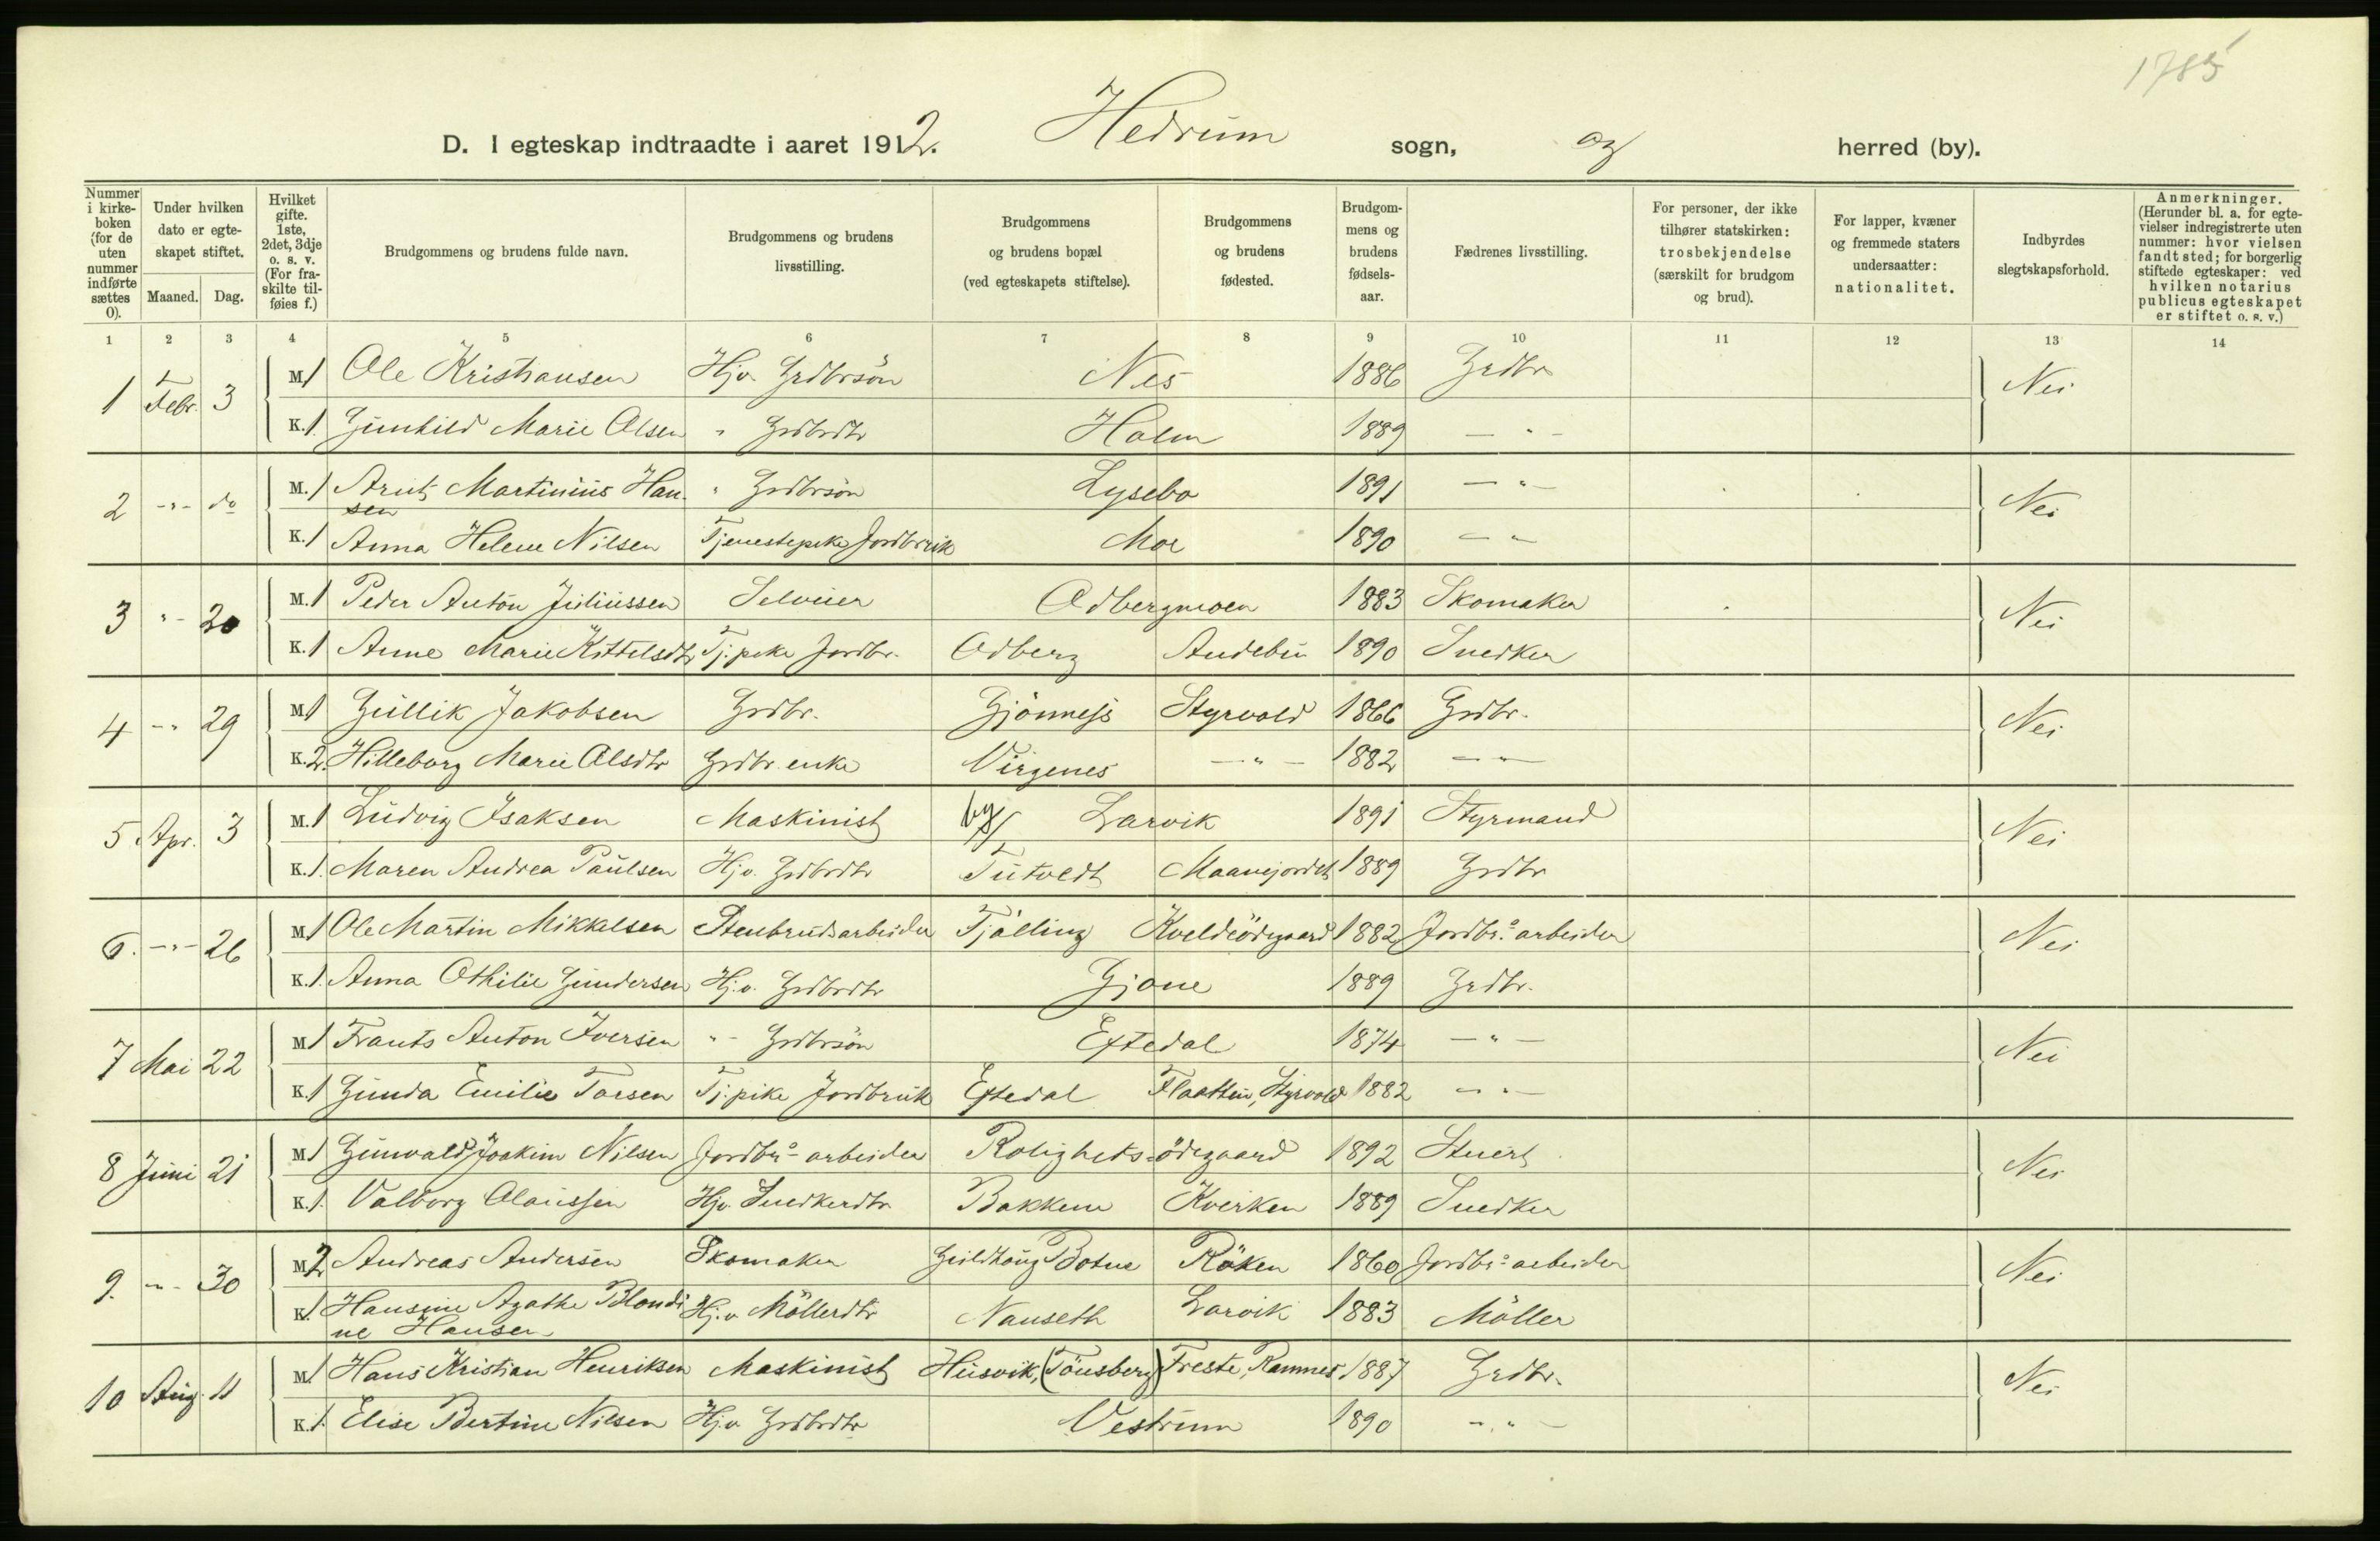 1785
D. I egteskap indtraadte i aaret 1912. Hedrum sogn, og herred (by).
Nummer i kirkeboken (for de uten nummer indførte sættes 0). | Under hvilken dato er egteskapet stiftet. Maaned. Dag. | Hvilket gifte. 1ste, 2det, 3dje o. s. v. (For fraskilte tilføies f.) | Brudgommens og brudens fulde navn. | Brudgommens og brudens livsstilling. | Brudgommens og brudens bopæl (ved egteskapets stiftelse). | Brudgommens og brudens fødested. | Brudgommens og brudens fødselsaar. | Fædrenes livsstilling. | For personer, der ikke tilhører statskirken: trosbekjendelse (særskilt for brudgom og brud). | For lapper, kvæner og fremmede staters undersaatter: nationalitet. | Indbyrdes slegtskapsforhold. | Anmerkninger. (Herunder bl. a. for egtevielser indregistrerte uten nummer: hvor vielsen fandt sted; for borgerlig stiftede egteskaper: ved hvilken notarius publicus egteskapet er stiftet o. s. v.)
1 2 3 4 5 6 7 8 9 10 11 12 13 14
1 Febr. 3 M. 1 Ole Kristiansen Hjv. Grdbrsön Nes 1886 Grdbr Nei
K. 1. Gunhild Marie Olsen " Grdbrdtr Holm 1889 — " —
2 - " - do M. 1 Arnt Martinius Hansen " Grdbrsön Lysebo 1891 — " — Nei
K. 1 Anna Helene Nilsen Tjenestepike Jordbruk Moe 1890 — " —
3 " - 20 M. 1 Peder Anton Juliussen Selveier Odbergmoen 1883 Skomaker Nei
K. 1 Anne Marie Kittelsdtr Tj. pike Jordbr. Odberg Andebu 1890 Snedker
4 - " 29 M. 1 Gullik Jakobsen Grdbr. Gjönness Styrvold 1866 Grdbr. Nei
K. 2. Hilleborg Marie Olsdtr Grdbr. enke Virgenes — " — 1882 — " —
5 Apr. 3 M. 1 Ludvig Isaksen Maskinist by Larvik 1891 Styrmand Nei
K. 1. Maren Andrea Paulsen Hjv. Grdbrdtr Tutvedt Maanejordet 1889 Grdbr
6. - " - 26 M. 1 Ole Martin Mikkelsen Stenbrudsarbeider Tjölling Kveldeödegaard 1882 Jordbrs arbeider Nei
K. 1. Anna Othilie Gundersen Hj. v. Grdbrdtr Gjone 1889 Grdbr.
7 Mai 22 M. 1 Frants Anton Iversen " - Grdbrsön Eftedal 1874 — " — Nei
K. 1 Gunda Emilie Torsen Tj. pike Jordbruk Eftedal Flaatten, Styrvold 1882 — " —
8 Juni 21 M. 1 Gunvald Joakim Nilsen Jordbrs- arbeider Rolighets-ödegaard 1892 Stuert Nei
K. 1. Valborg Olaussen Hjv. Snedkerdtr Bakkene Kverken 1889 Snedker
9. - " - 30 M. 2 Andreas Andersen Skomaker Guldhaug Botne Röken 1860 Jordbrs arbeider Nei
K. 1 Hansine Agathe Blondine Hansen Hj. v. Möllerdtr Nanseth Larvik 1883 Möller
10 Aug. 11 M. 1 Hans Kristian Henriksen Maskinist Husvik, (Tönsberg) Freste, Ramnes 1887 Grdbr. Nei
K. 1. Elise Bertine Nilsen Hjv. Grdbrdtr Vestrum 1890 — " —